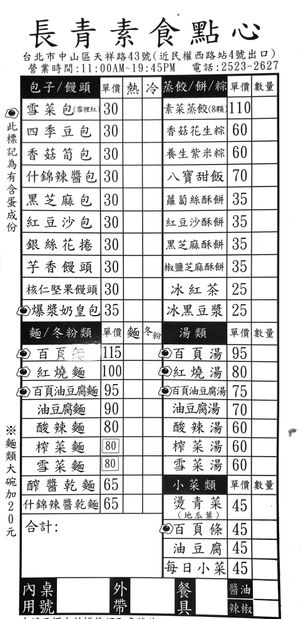 長青素食點心
台北市中山區天祥路43號(近民權西路站4號出口)
營業時間:11:00AM~19:45PM 電話:2523-2627
包子/饅頭 單價 熱 冷
雪菜包(雪裡紅) 30
四季豆包 30
香菇筍包 30
什錦辣醬包 30
黑芝麻包 30
紅豆沙包 30
銀絲花捲 30
芋香饅頭 30
核仁堅果饅頭 30
爆漿奶皇包 35
蒸餃/餅/粽 單價 數量
素菜蒸餃(8顆) 110
香菇花生粽 60
養生紫米粽 60
八寶甜飯 70
蘿蔔絲酥餅 35
紅豆沙酥餅 35
黑芝麻酥餅 35
椒鹽芝麻酥餅 35
冰紅茶 25
冰黑豆漿 25
此標記為有含蛋成份
麵/冬粉類 單價 麵 冬粉
百頁 115
紅燒麵 100
百頁油豆腐麵 95
油豆腐麵 90
酸辣麵 80
榨菜麵 80
雪菜麵 80
醡醬乾麵 65
什錦辣乾麵 65
合計:
湯類 單價 數量
百頁湯 95
紅燒湯 80
百頁油豆腐湯 75
油豆腐湯 70
酸辣湯 60
榨菜湯 60
雪菜湯 60
小菜類 單價 數量
燙青菜 45
(地瓜葉)
百頁條 45
油豆腐 45
每日小菜 45
※麵類大碗加20元
內用 桌號 外帶 餐具 醬油
辣椒